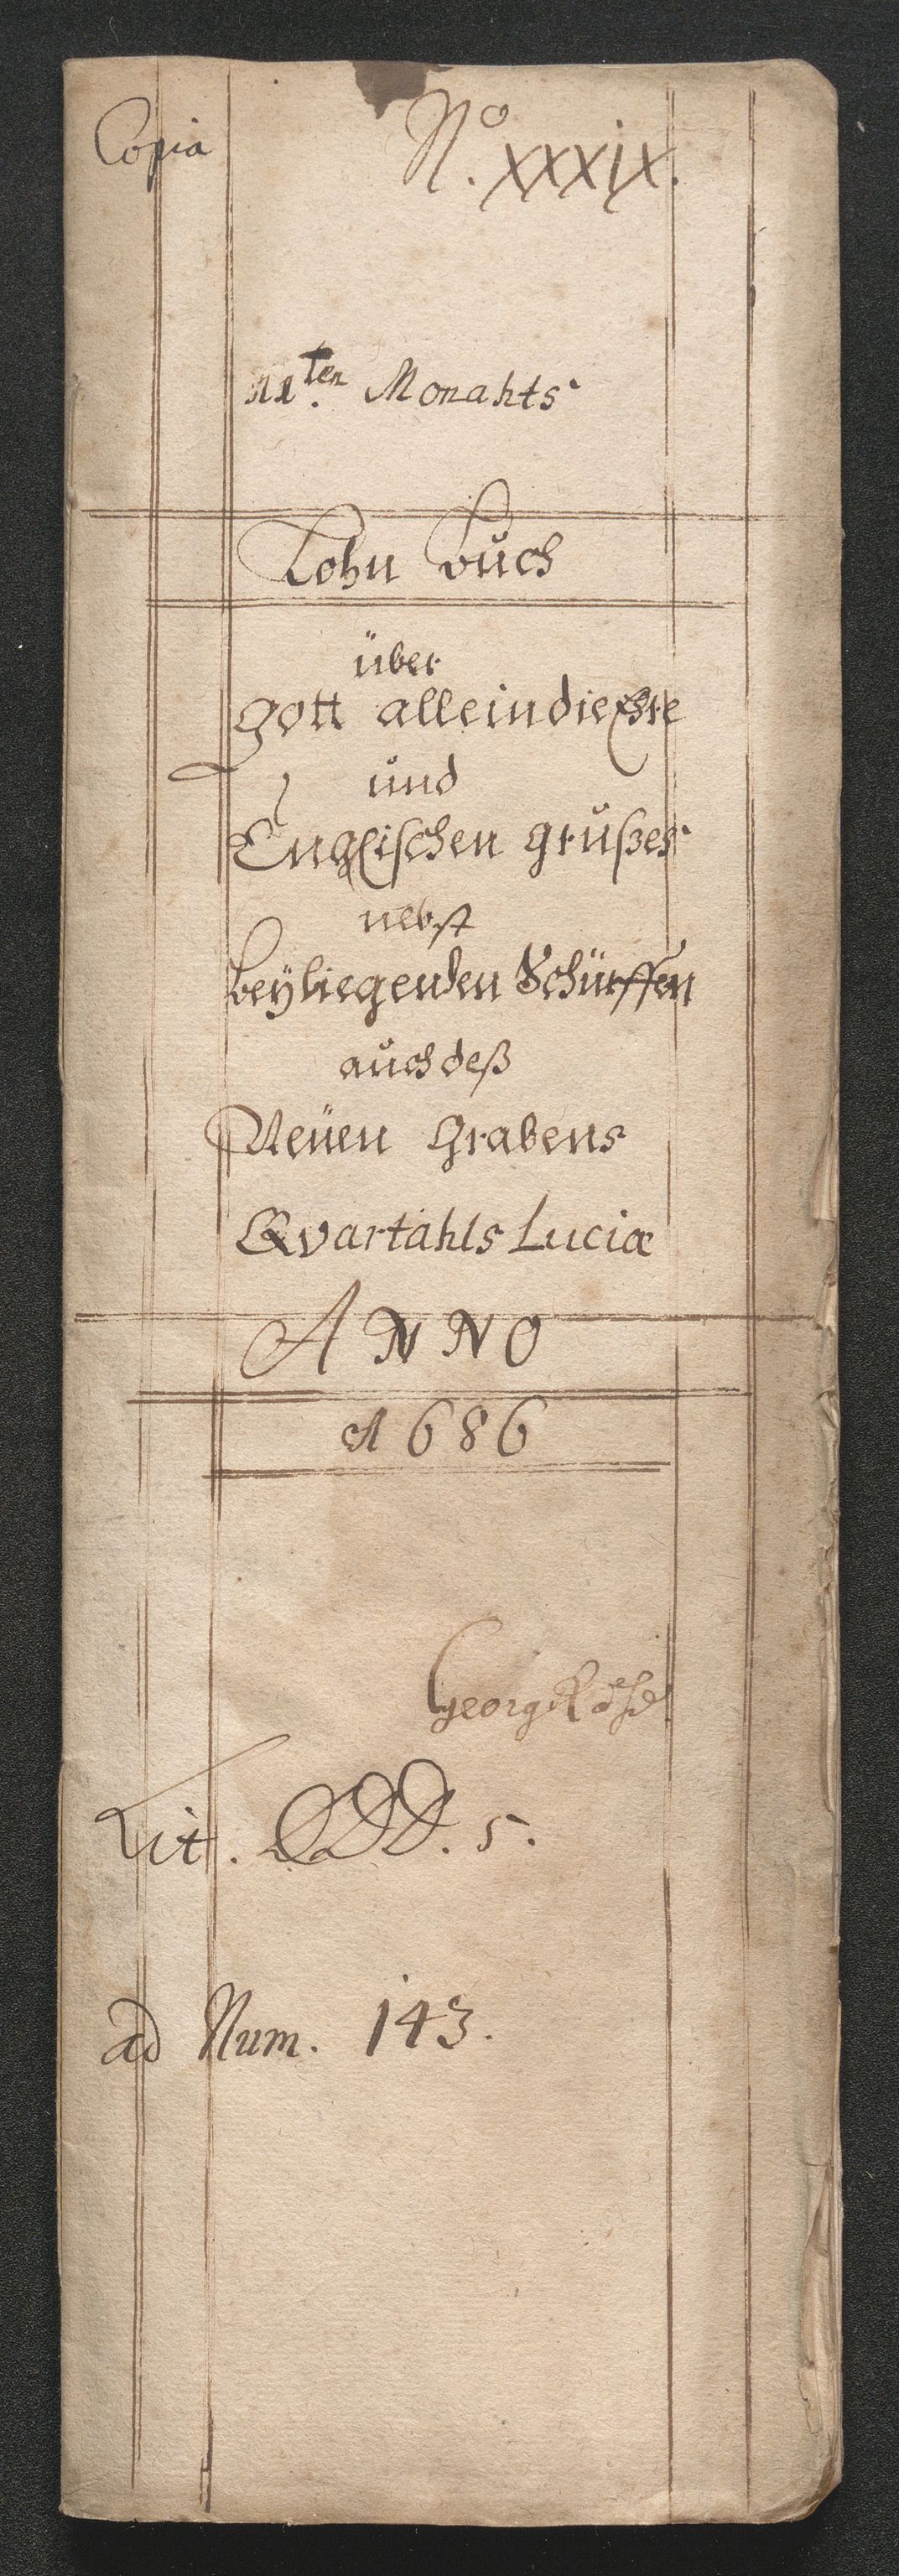 Copia
No. XXXIX.
11ten. Monahts
Lohn Buch
über
Gott allein die Ehre
und
Englischen Grußes
nebst
beyliegenden Schürffen
auch deß
Neüen Grabens
Qvartahls Luciæ
ANNO
1686
Georg
Lit. DDD. 5.
ad Num. 143.